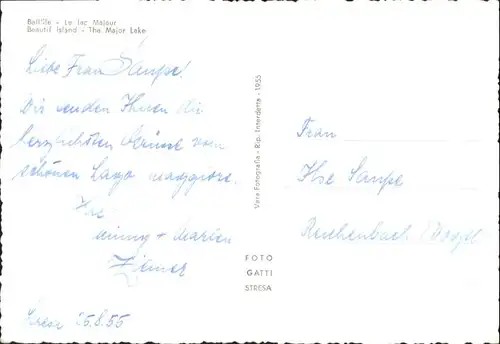 Bell'Ile - Le lac Majour
Beautif Island - The Major Lake
Liebe Frau Sampe!
Wir senden Ihnen die
herzlichsten Grüsse vom
schönen Lago maggiore.
Ihre
+ Marien
Stresa 25.8.55
Vera Fotografia - Rip. Interdetta - 1955
FOTO
GATTI
STRESA
Frau
Ilse Sampe
Reichenbach / Vogtl.